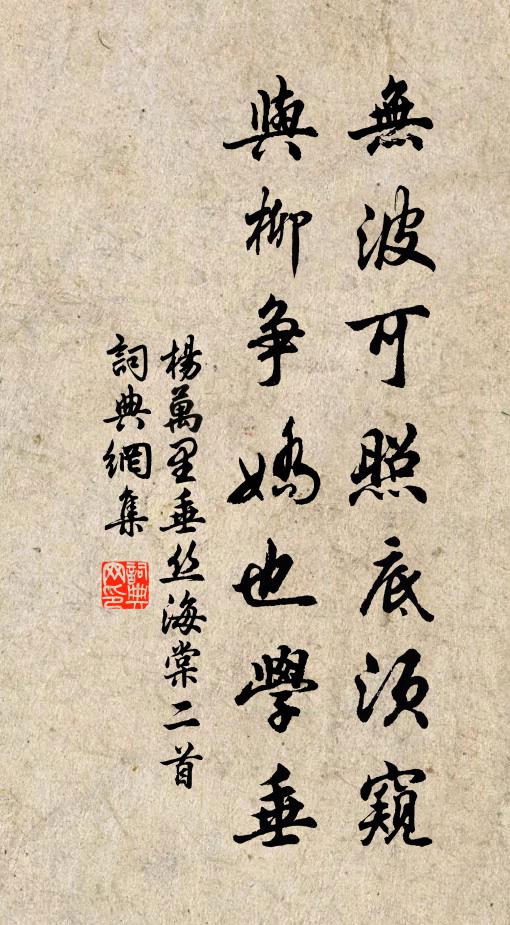 無波可照底須窺
與柳爭嬌也學垂
楊萬里垂丝海棠二首
詞典網集
詞典网印